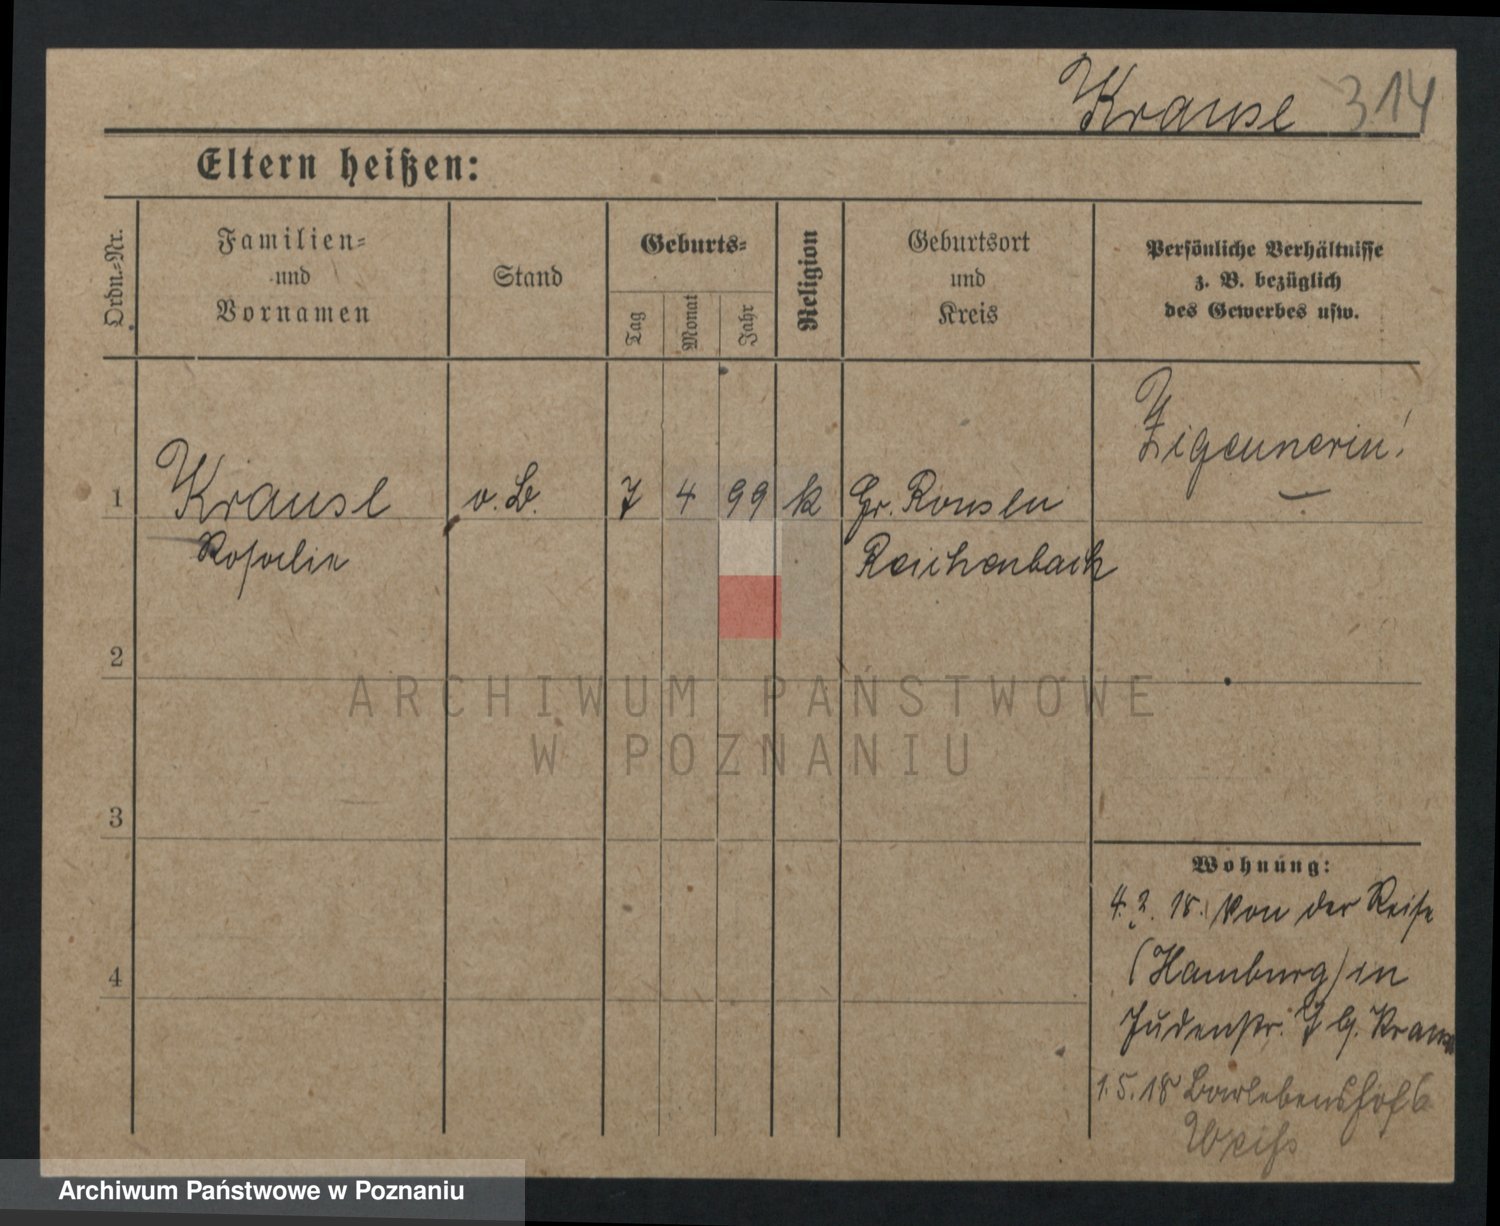 Krause 314
Eltern heißen:
Ordn.=Nr.
Familien=
und
Vornamen
Stand
Geburts=
Tag
Monat
Jahr
Religion
Geburtsort
und
Kreis
Persönliche Verhältnisse
z. B. bezüglich
des Gewerbes usw.
Zigeunerin!
1 Krause o. B. 7 4 99 k Gr. Rousen
Rosalie Reichenbach
2
ARCHIWUM PAŃSTWOWE
W POZNANIU
3
Wohnung:
4. 2. 18. Von der Reise
(Hamburg) in
4
Judenstr. 7 b. Krause
1. 5. 18 Barlebenshof 6
Weiß
Archiwum Państwowe w Poznaniu